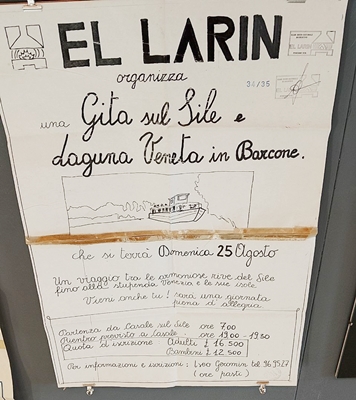 EL LARIN
organizza
34/35
EL LARIN
una Gita sul Sile e
Laguna Veneta in Barcone.
che si terrà Domenica 25 Agosto
Un viaggio tra le armoniose rive del Sile
fino alla stupenda Venezia e le sue isole
Vieni anche tu! sarà una giornata
piena d'allegria
Partenza da Casale sul Sile ore 7,00
Rientro previsto a Casale - ore 19,00 - 19,30
Quota d'iscrizione Adulti £ 16.500
Bambini £ 12.500
Per informazioni e iscrizioni: Geromin tel.
(ore pasti)